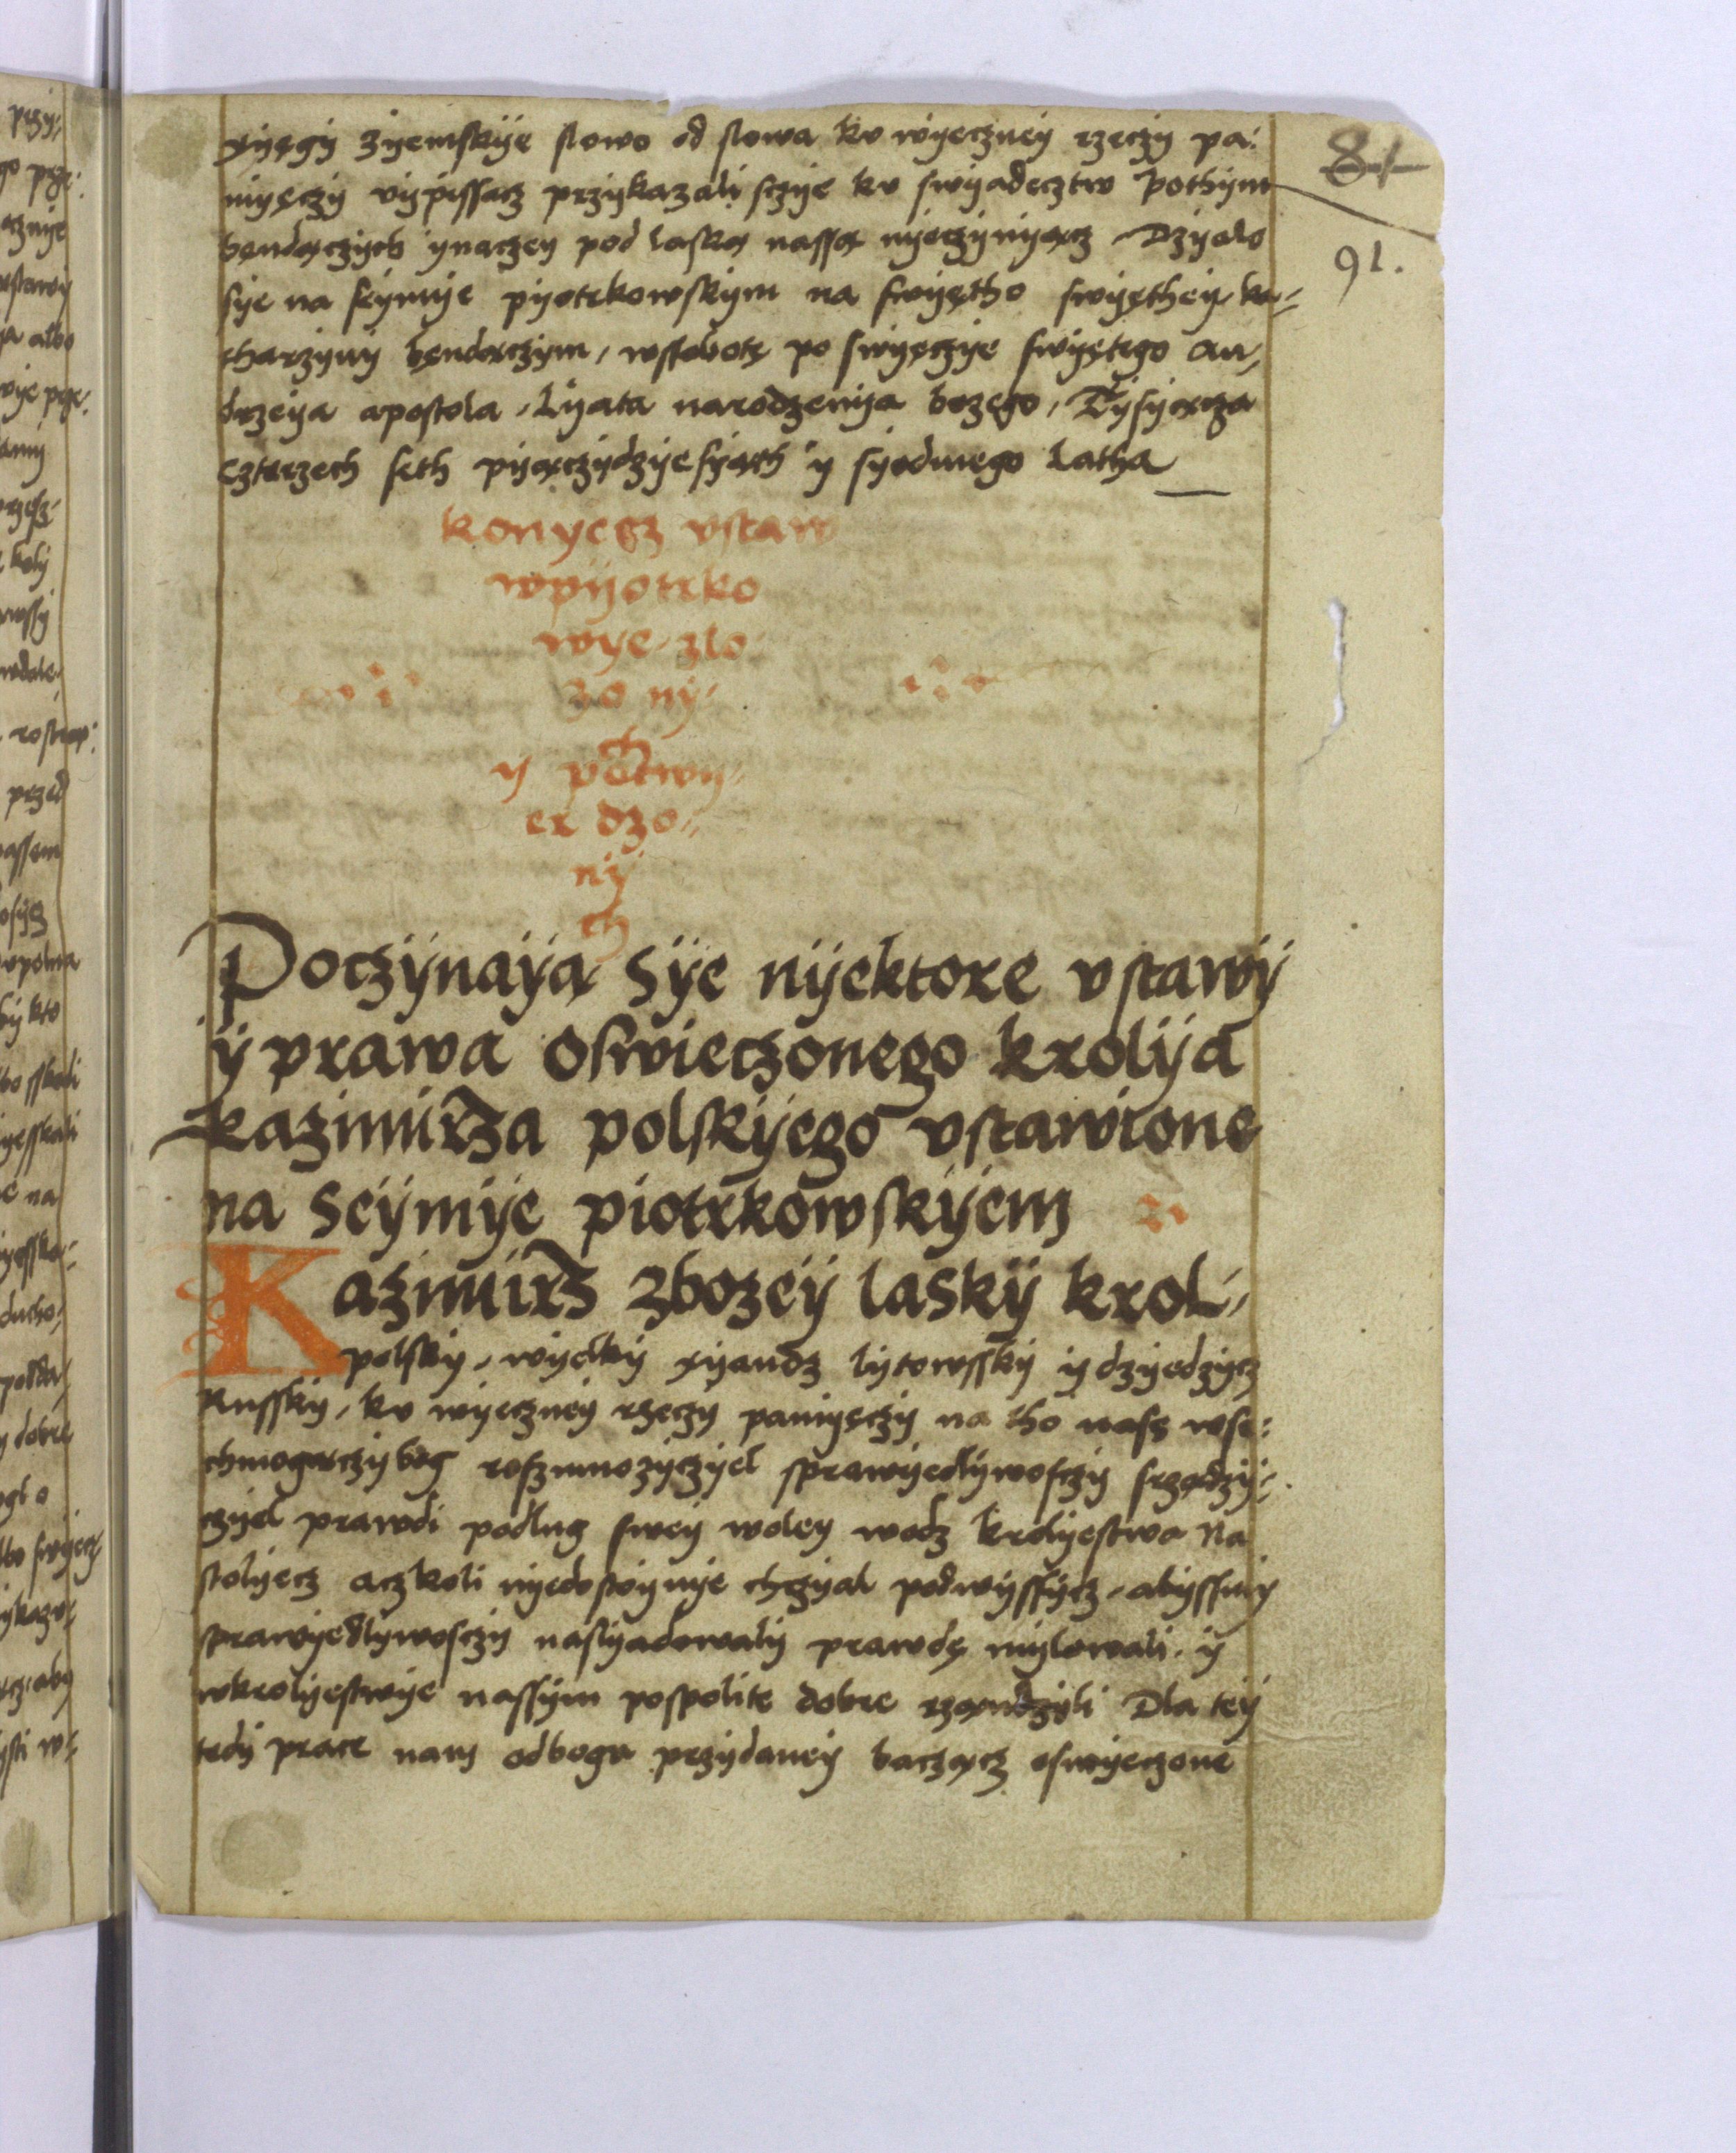 xyęgy zyemskye slowo od slowa ku wyeczney rzeczy pa:
myęczy vypissacz przykazali sczye ku swyadecztw pothym
bęndączych ynaczey pod laską nassą nyeczynyącz Dzyalo
sye na seymye pyotrkowskym na swyętho swyęthey ka-
tharzyny bęndączym, wssobotę po swyęczye swyętego an,
drzeya apostola, Lyata narodzenya bozego, Tysyącza
cztyrzech seth pyączydzyesyąth y syodmego Latha
konyecz vstaw
wpyotrko
wye zlo
zo ny-
ch
y potwy-
er dzo-
ny
ch
Poczynaya sye nyektore vstawy
y prawa oswieczonego krolya
kazimirza polskyego vstawione
na Seymye piotrkowskyem
Kazimirz zbozey lasky krol-
polsky, wyelky xyandz lytowssky y dzyedzycz
Russky, ku wyeczney rzeczy pamyęczy na tho nasz wse:
chmogączy bog roszmnozyczyel sprawyedlywosczy srządzy-
czyel prawdi podlug swey woley wodz krolyestwa na
stolyecz aczkoli nyedostoynye chczyal podwyssycz, abyssmy
sprawyedlywosczy naslyadowaly prawdę mylowali y
wkrolyestwye nassym pospolite dobre rząndzyli Dla tey
tedy prace nam odboga przydaney bacząncz oswyeczone
84
91.